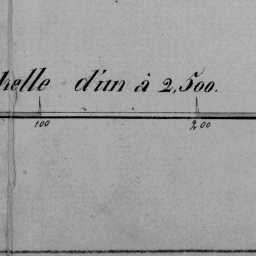 helle d'un à 2,500.
100 200